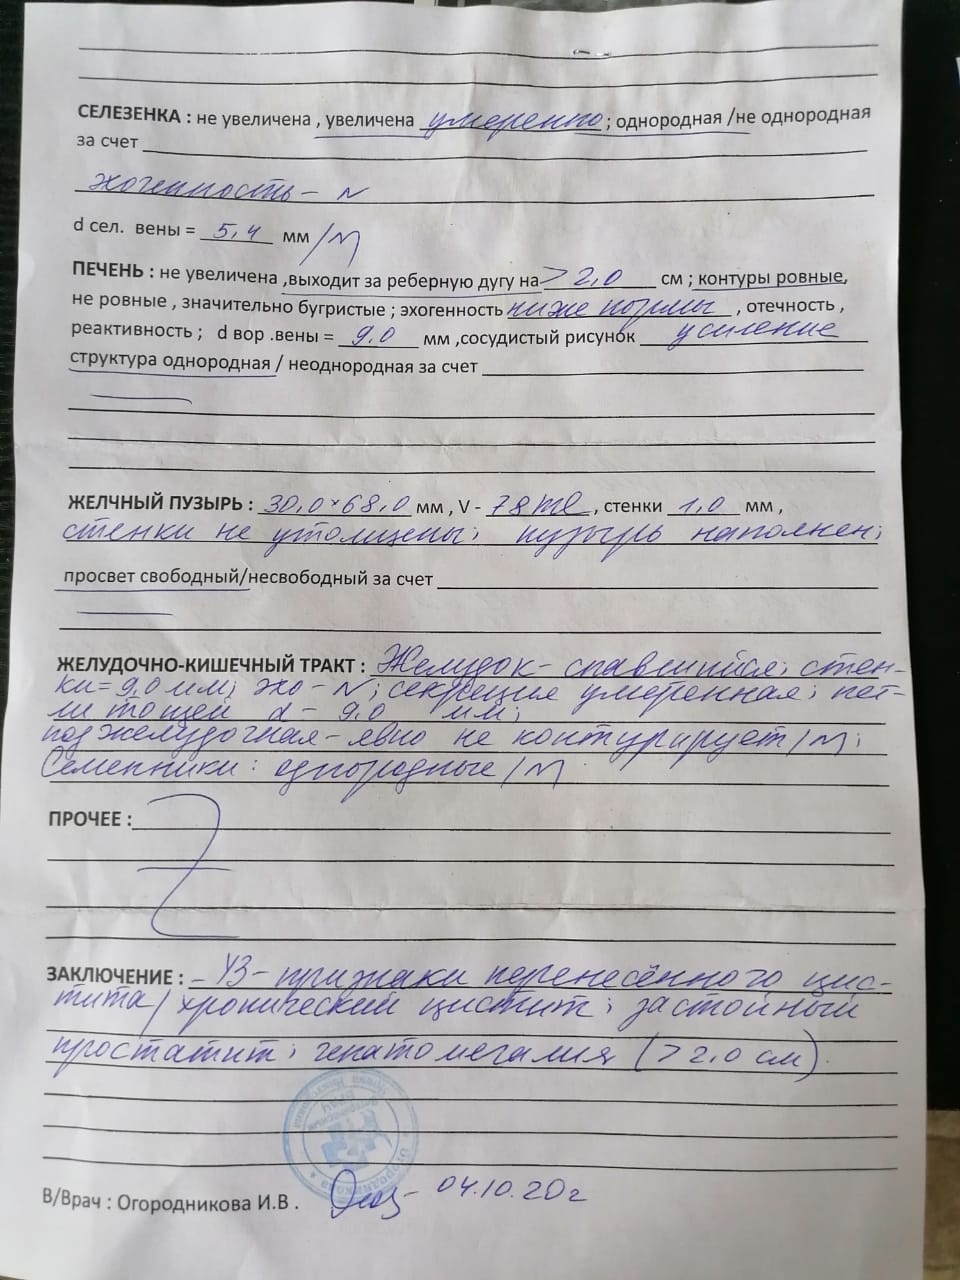 СЕЛЕЗЕНКА : не увеличена , увеличена умеренно ; однородная /не однородная
за счет
эхогенность – N
d сел. вены = 5,4 мм /N
ПЕЧЕНЬ : не увеличена ,выходит за реберную дугу на > 2,0 см ; контуры ровные,
не ровные , значительно бугристые ; эхогенность ниже нормы , отечность ,
реактивность ; d вор .вены = 9,0 мм ,сосудистый рисунок усиление
структура однородная / неоднородная за счет
ЖЕЛЧНЫЙ ПУЗЫРЬ : 30,0 × 68,0 мм , V - 78 ml , стенки 1,0 мм ,
стенки не утолщены; пузырь наполнен;
просвет свободный/несвободный за счет
ЖЕЛУДОЧНО-КИШЕЧНЫЙ ТРАКТ : Желудок – спавшийся; стен-
ки = 9,0 мм; эхо – N; секреция умеренная; пет-
ли тощей d – 9,0 мм;
поджелудочная – явно не контурирует /N;
Семенники: однородные /N
ПРОЧЕЕ : Z
ЗАКЛЮЧЕНИЕ : – УЗ – признаки перенесённого цис-
тита / хронический цистит; застойный
простатит; гепатомегалия (> 2,0 см).
Огородникова
В/Врач : Огородникова И.В . 04.10.20г